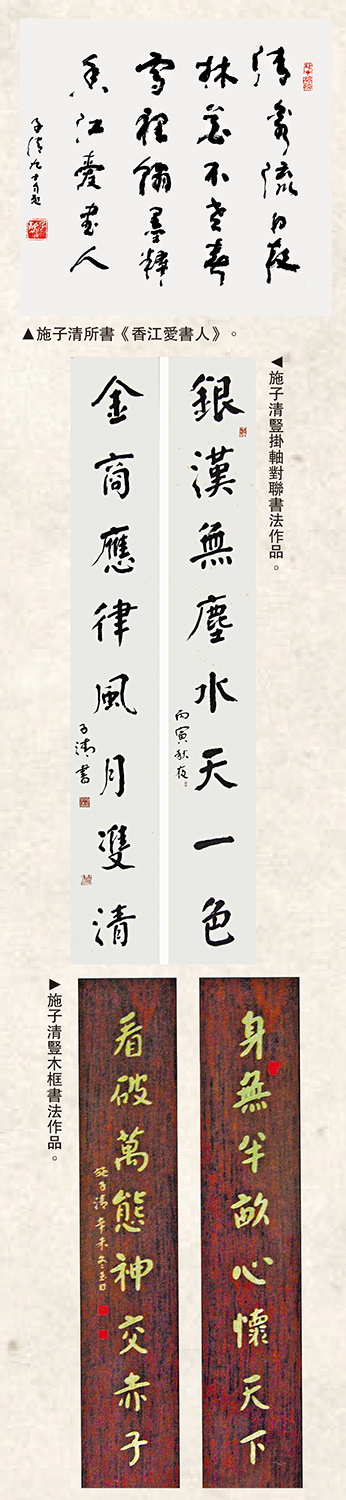 清流日夜
林不老春
墨
香江愛書人
子清
▲施子清所書《香江愛書人》。
◀施子清豎掛軸對聯書法作品。
銀漢無塵水天一色
丙寅秋夜
金商應律風月雙清
子清書
▶施子清豎木框書法作品。
身無半畝心懷天下
看破萬態神交赤子
施子清辛未冬日